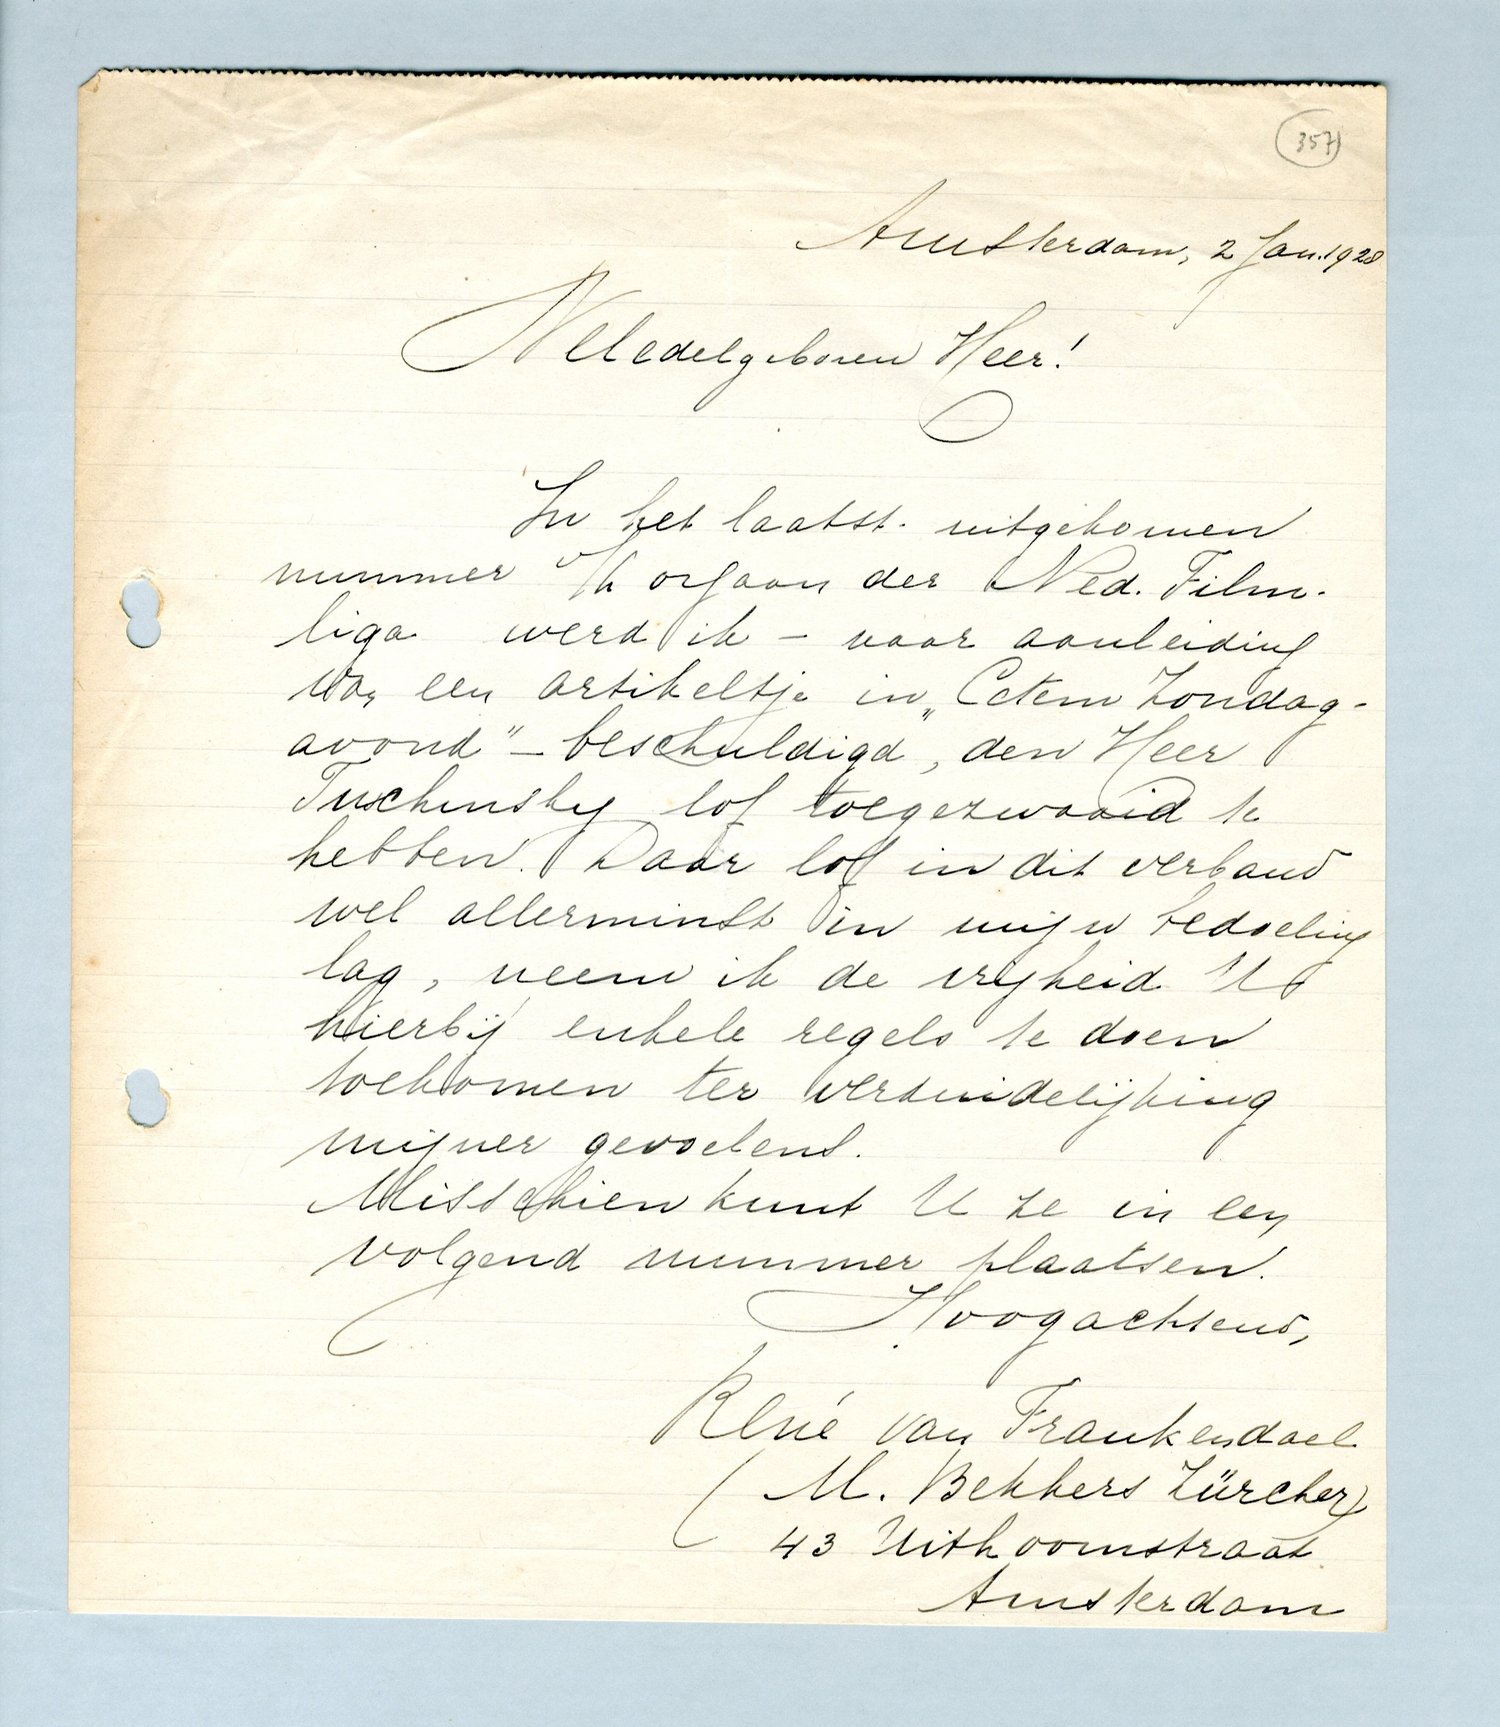 357
Amsterdam, 2 Jan. 1928
Weledelgeboren Heer!
In het laatst-uitgekomen
nummer v/h orgaan der Ned. Film-
liga werd ik – naar aanleiding
van een artikeltje in „Cetem Zondag-
avond" – beschuldigd, den Heer
Tuschinsky lof toegezwaaid te
hebben. Daar lof in dit verband
wel allerminst in mijn bedoeling
lag, neem ik de vrijheid U
hierbij enkele regels te doen
toekomen ter verduidelijking
mijner gevoelens.
Misschien kunt U ze in een
volgend nummer plaatsen.
Hoogachtend,
René van Frankendael
(M. Bekkers Zürcher)
43 Uithoornstraat
Amsterdam